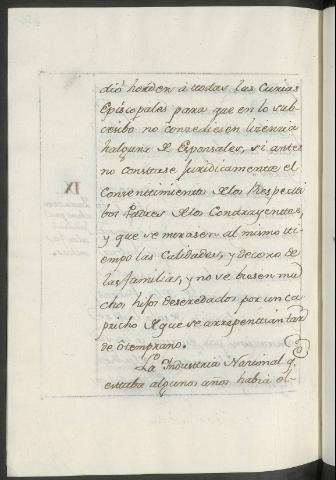 dió horden à todas las Curias
Episcopales para que en lo sub-
cesibo no conzediesen lizenzia
halguna de Esponsales, si antes
no constase Juridicamente el
Consentimiento de los Respecti-
bos Padres de los Contrayentes,
y que se mirasen al mismo ti-
empo las Calidades, y decoro de
las familias, y no se biesen mu-
chos hijos deseredados por un ca-
pricho de que se arrepentirian tar
de ò temprano.
La Industria Nazional q.
estaba algunos años habia ol-